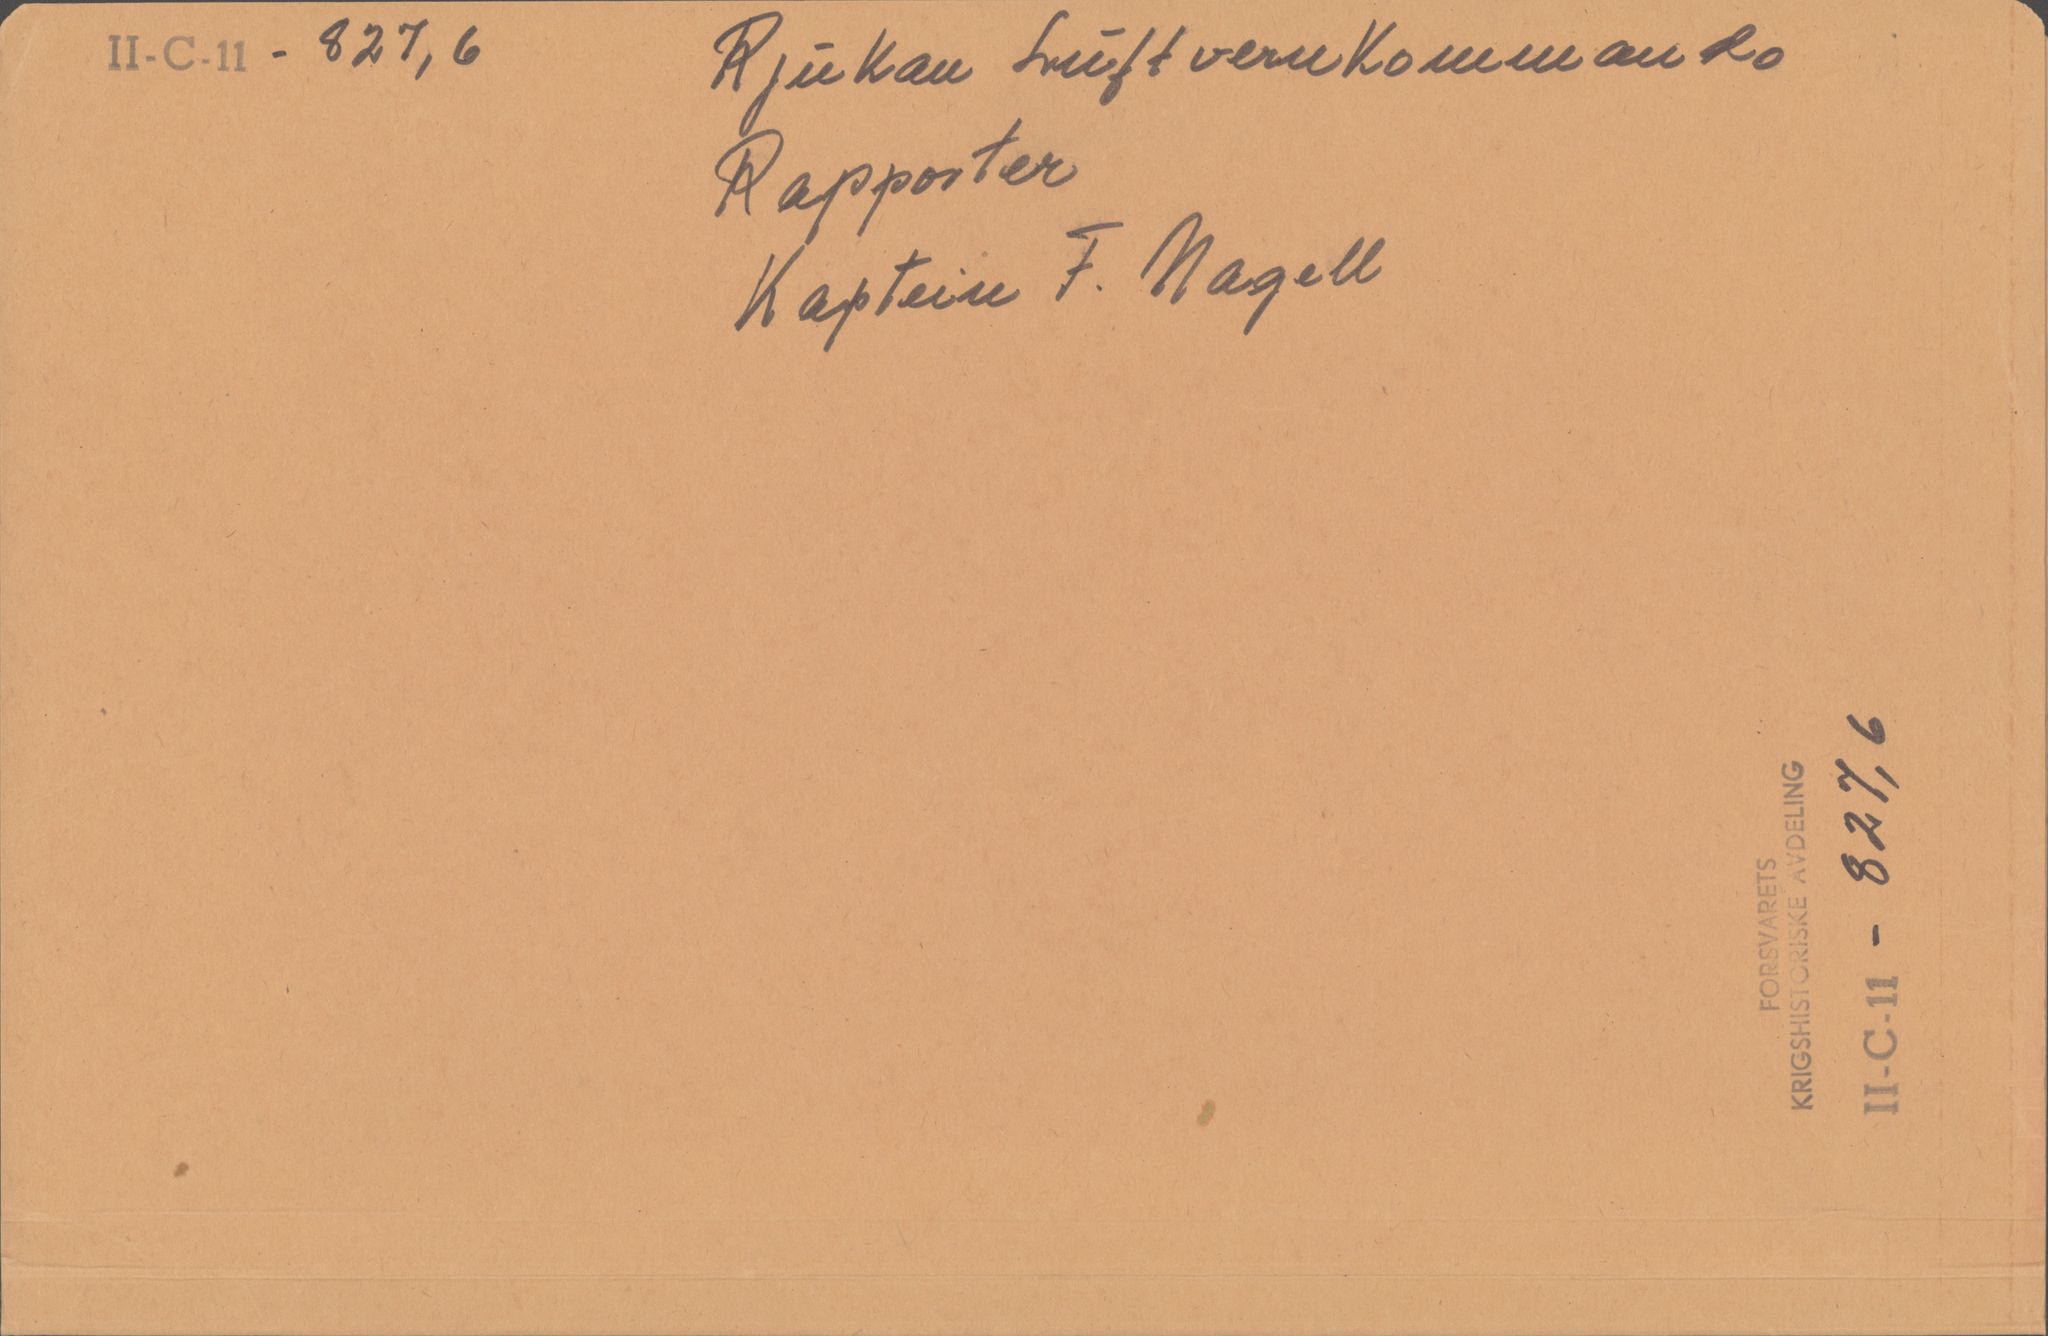 II-C-11 - 827,6
Rjukan Luftvernkommando
Rapporter
Kaptein F. Nagell
FORSVARETS
KRIGSHISTORISKE AVDELING
II-C-11 - 827,6